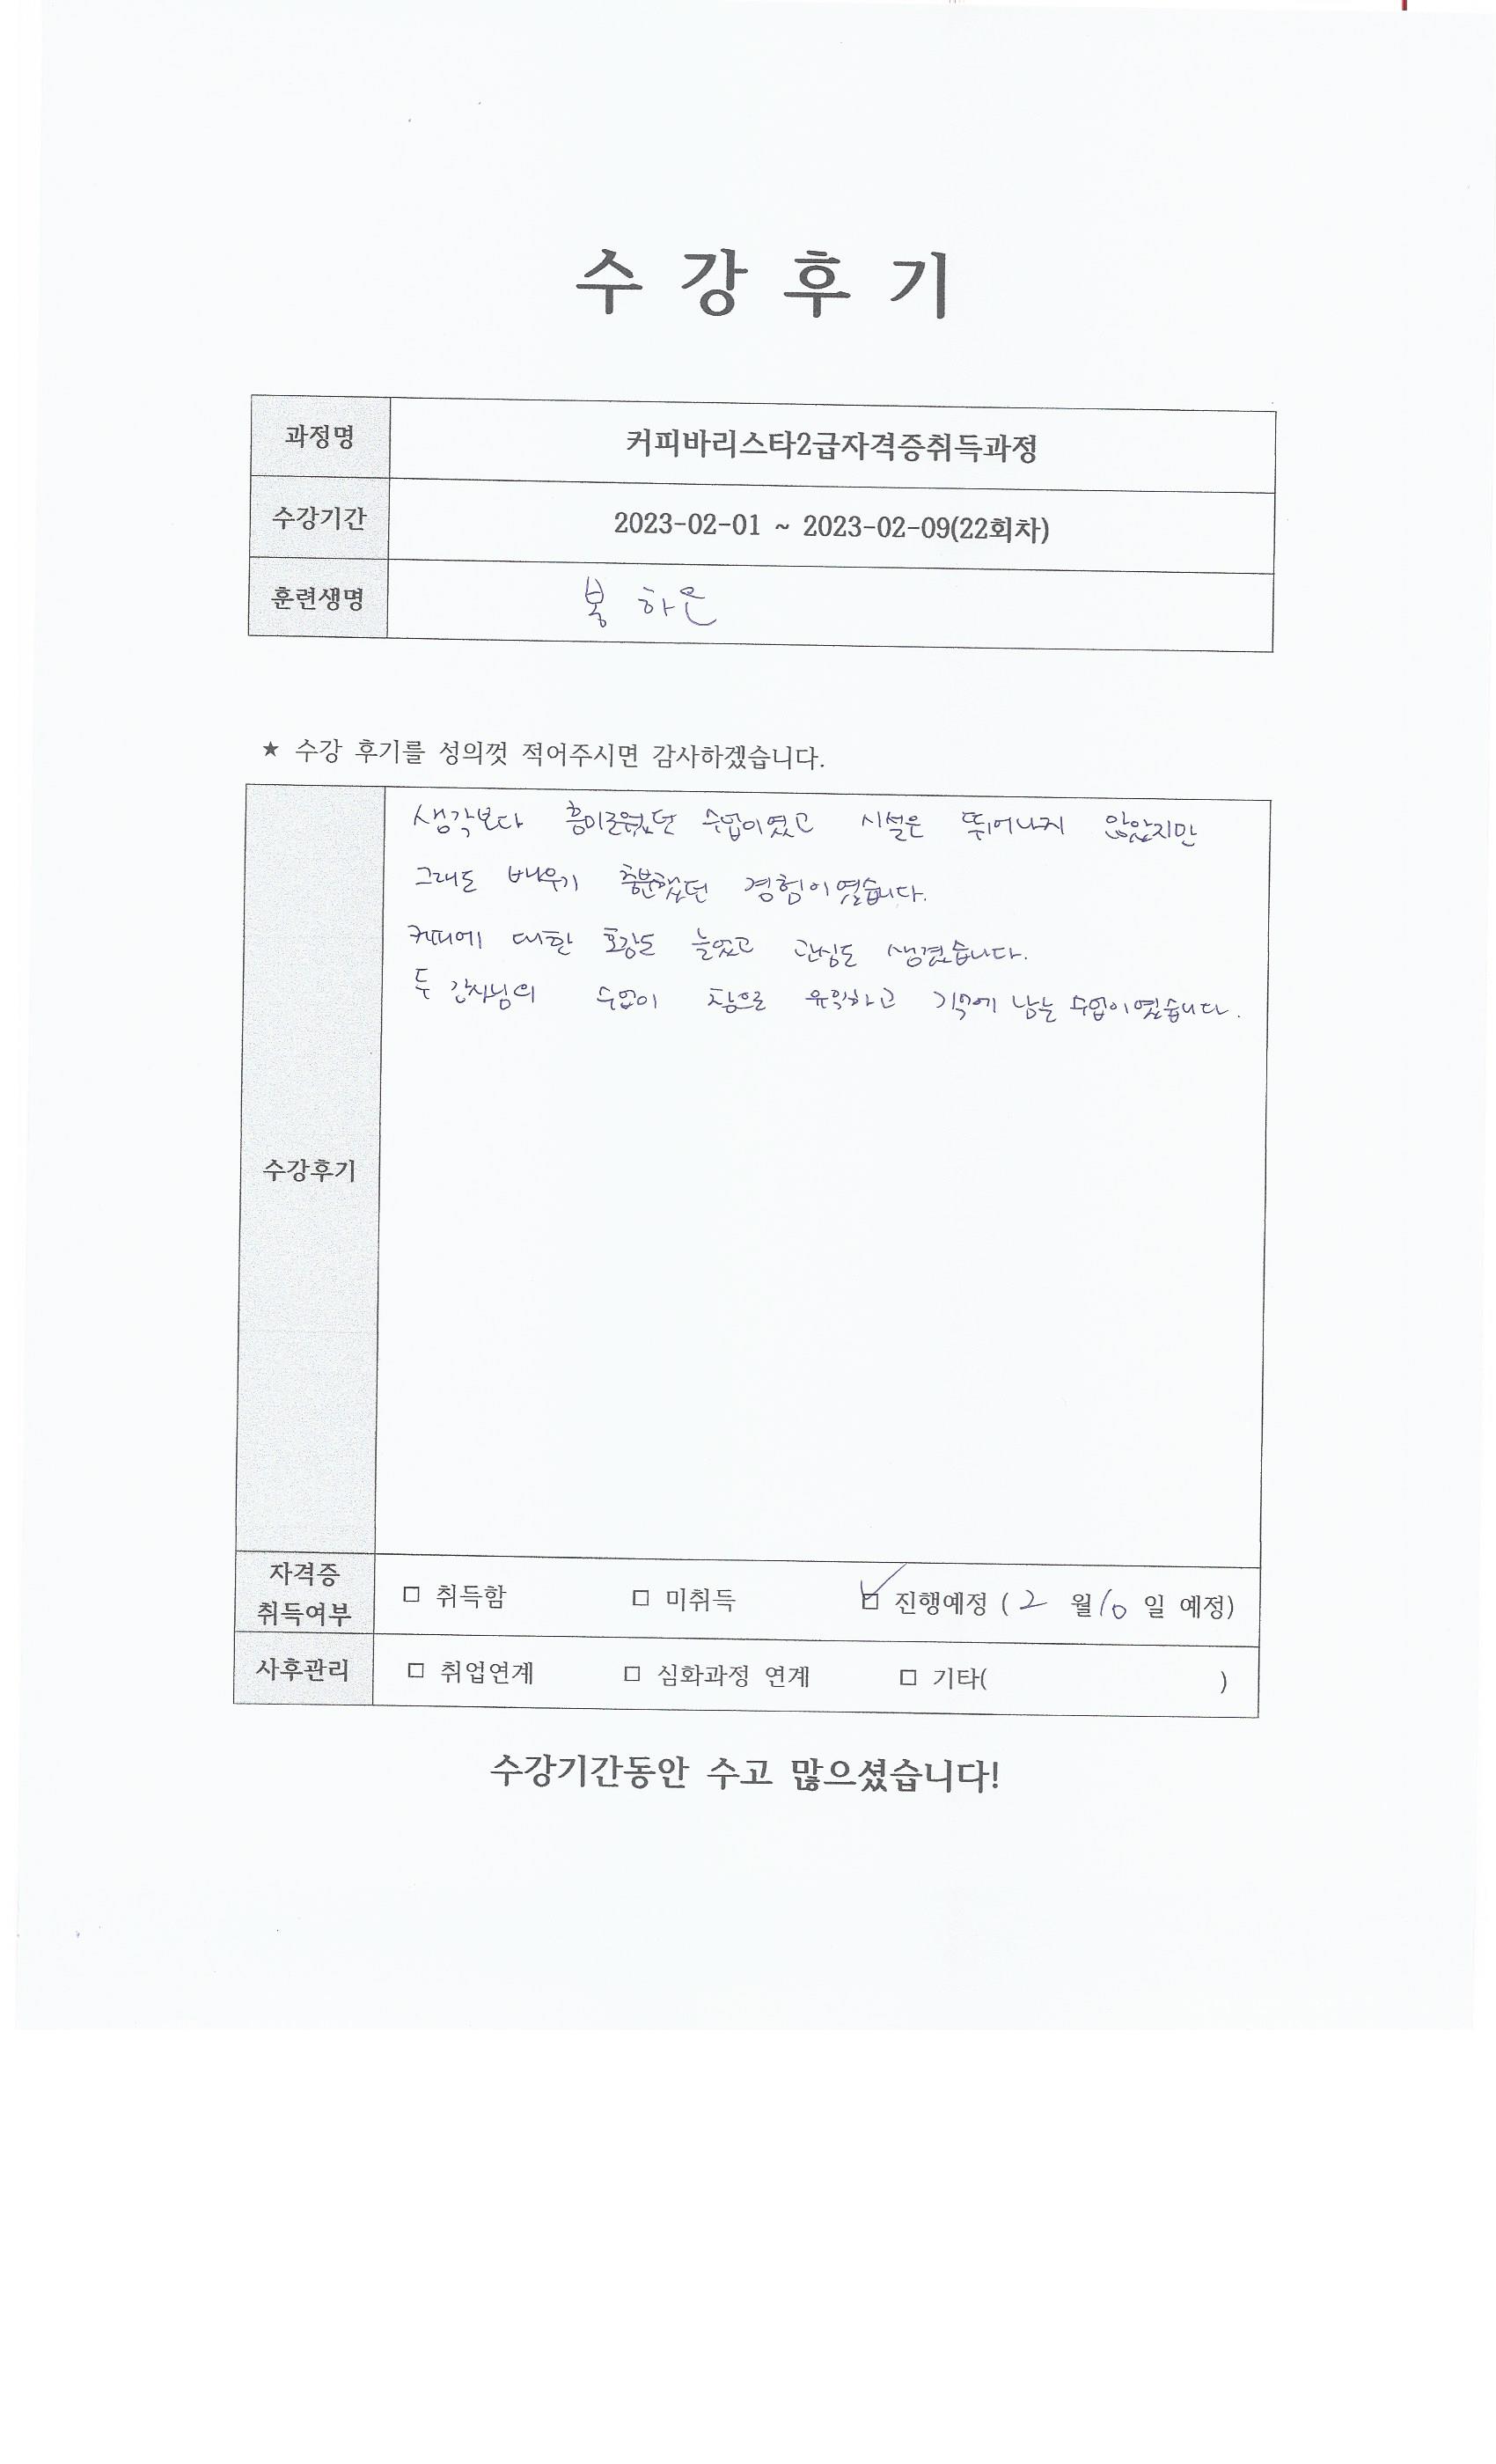 수 강 후 기
과정명 커피바리스타2급자격증취득과정
수강기간 2023-02-01 ~ 2023-02-09(22회차)
훈련생명 봉 하은
★ 수강 후기를 성의껏 적어주시면 감사하겠습니다.
생각보다 흥미로웠던 수업이였고 시설은 뛰어나지 않았지만
그래도 배우기 충분했던 경험이였습니다.
커피에 대한 호감도 늘었고 관심도 생겼습니다.
두 강사님의 수업이 참으로 유익하고 기억에 남는 수업이였습니다.
수강후기
자격증
취득여부 □ 취득함 □ 미취득 ☑ 진행예정 ( 2 월 10 일 예정)
사후관리 □ 취업연계 □ 심화과정 연계 □ 기타( )
수강기간동안 수고 많으셨습니다!